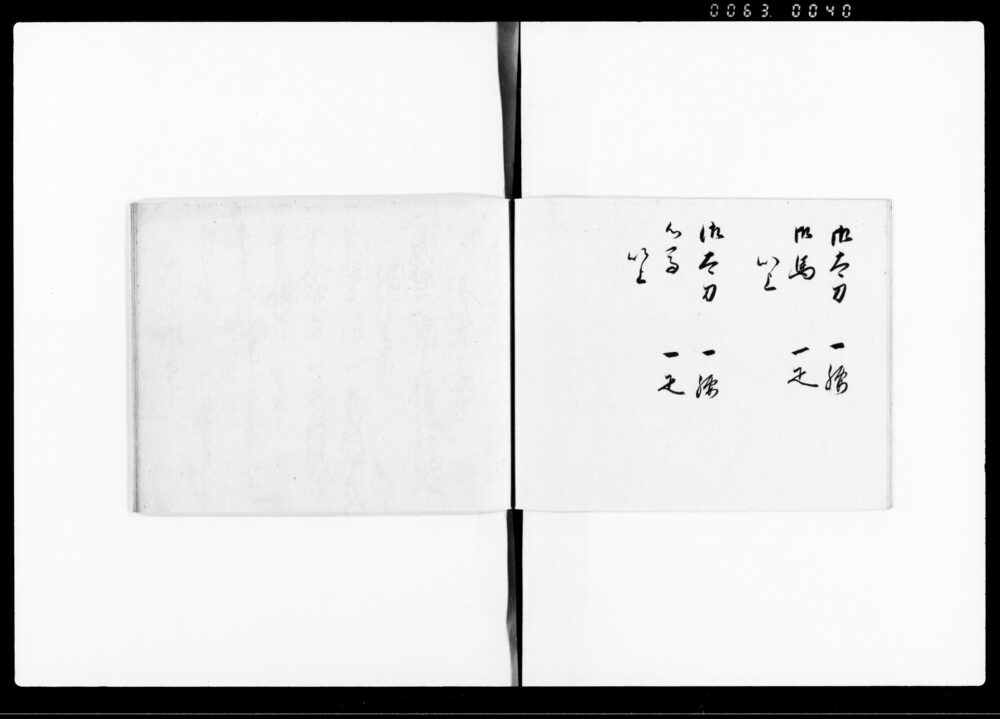 0063. 0040
御太刀 一腰
御馬 一疋
以上
御太刀 一腰
御馬 一疋
以上